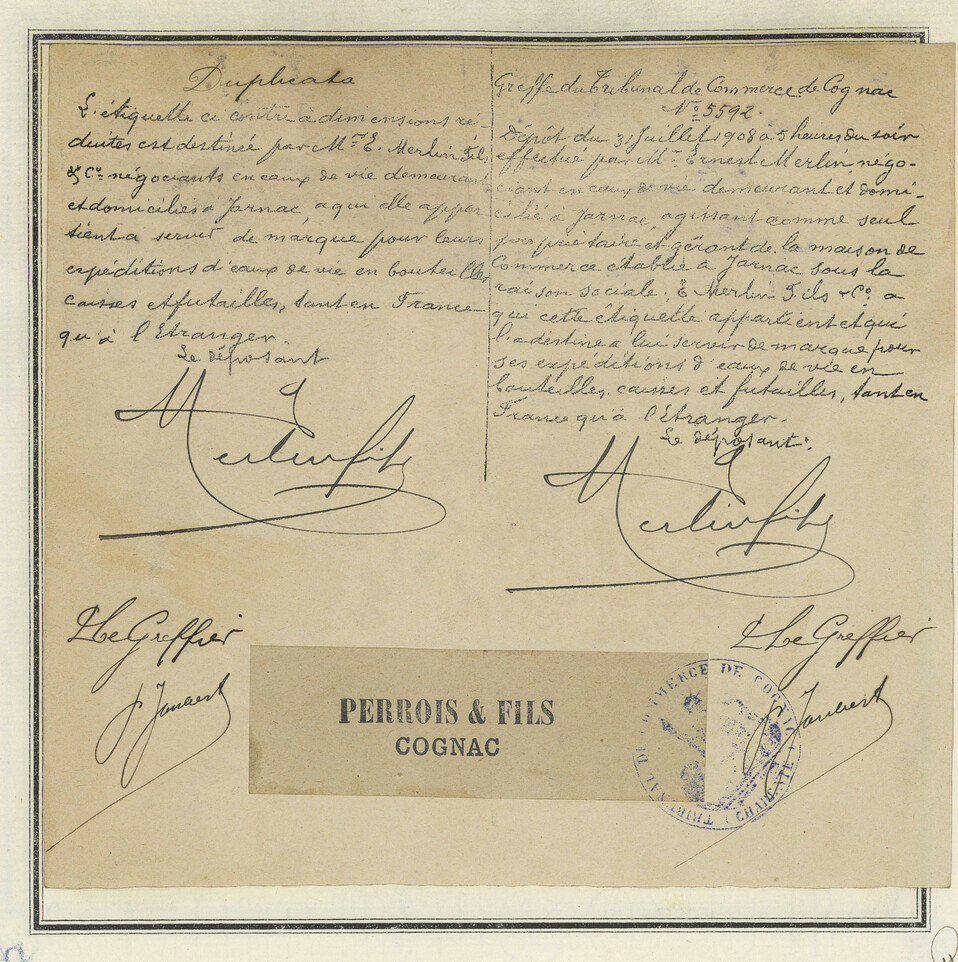 Duplicata
L'étiquette ci contre à dimensions ré-
duites est destinée par Mr E. Merlin Fils
& Co négociants en eaux de vie demeurant
et domiciliés à Jarnac, a qui elle appar
tient a servir de marque pour leurs
expéditions d'eaux de vie en bouteilles
caisses et futailles, tant en France
qu'à l'Etranger.
Le déposant
Merlin fils
Le Greffier
J. Joubert
Greffe du Tribunal de Commerce de Cognac
No 5592.
Dépôt du 31 Juillet 1908 à 5 heures du soir
effectué par Mr Ernest Merlin, négo-
ciant en eaux de vie demeurant et domi-
cilié à Jarnac, agissant comme seul
propriétaire et gérant de la maison de
Commerce établie à Jarnac sous la
raison sociale: E Merlin Fils & Co a
qui cette étiquette appartient et qui
l'a destine a lui servir de marque pour
ses expéditions d'eaux de vie en
bouteilles, caisses et futailles, tant en
France qu'à l'Etranger.
Le déposant:
Merlin fils
Le Greffier
J. Joubert
PERROIS & FILS
COGNAC
TRIBUNAL DE COMMERCE DE COGNAC (CHARENTE)